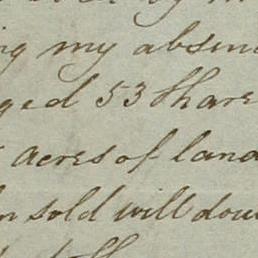 ing my absenc
ged 53 Share
acres of land
n sold will dou